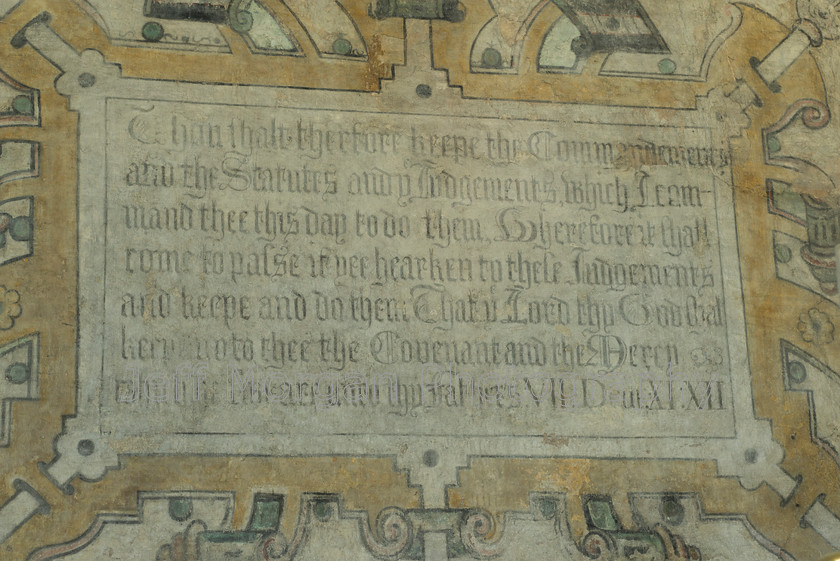 Thou shalt therfore keepe the Commandements
and the Statutes and yͤ Judgements, which I com-
mand thee this day to do them. Wherefore it shall
come to passe if yee hearken to these Judgements
and keepe and do them That yͤ Lord thy God shal
keep unto thee the Covenant and the Mercy
unto thy Fathers VII. Deut. XI. XII